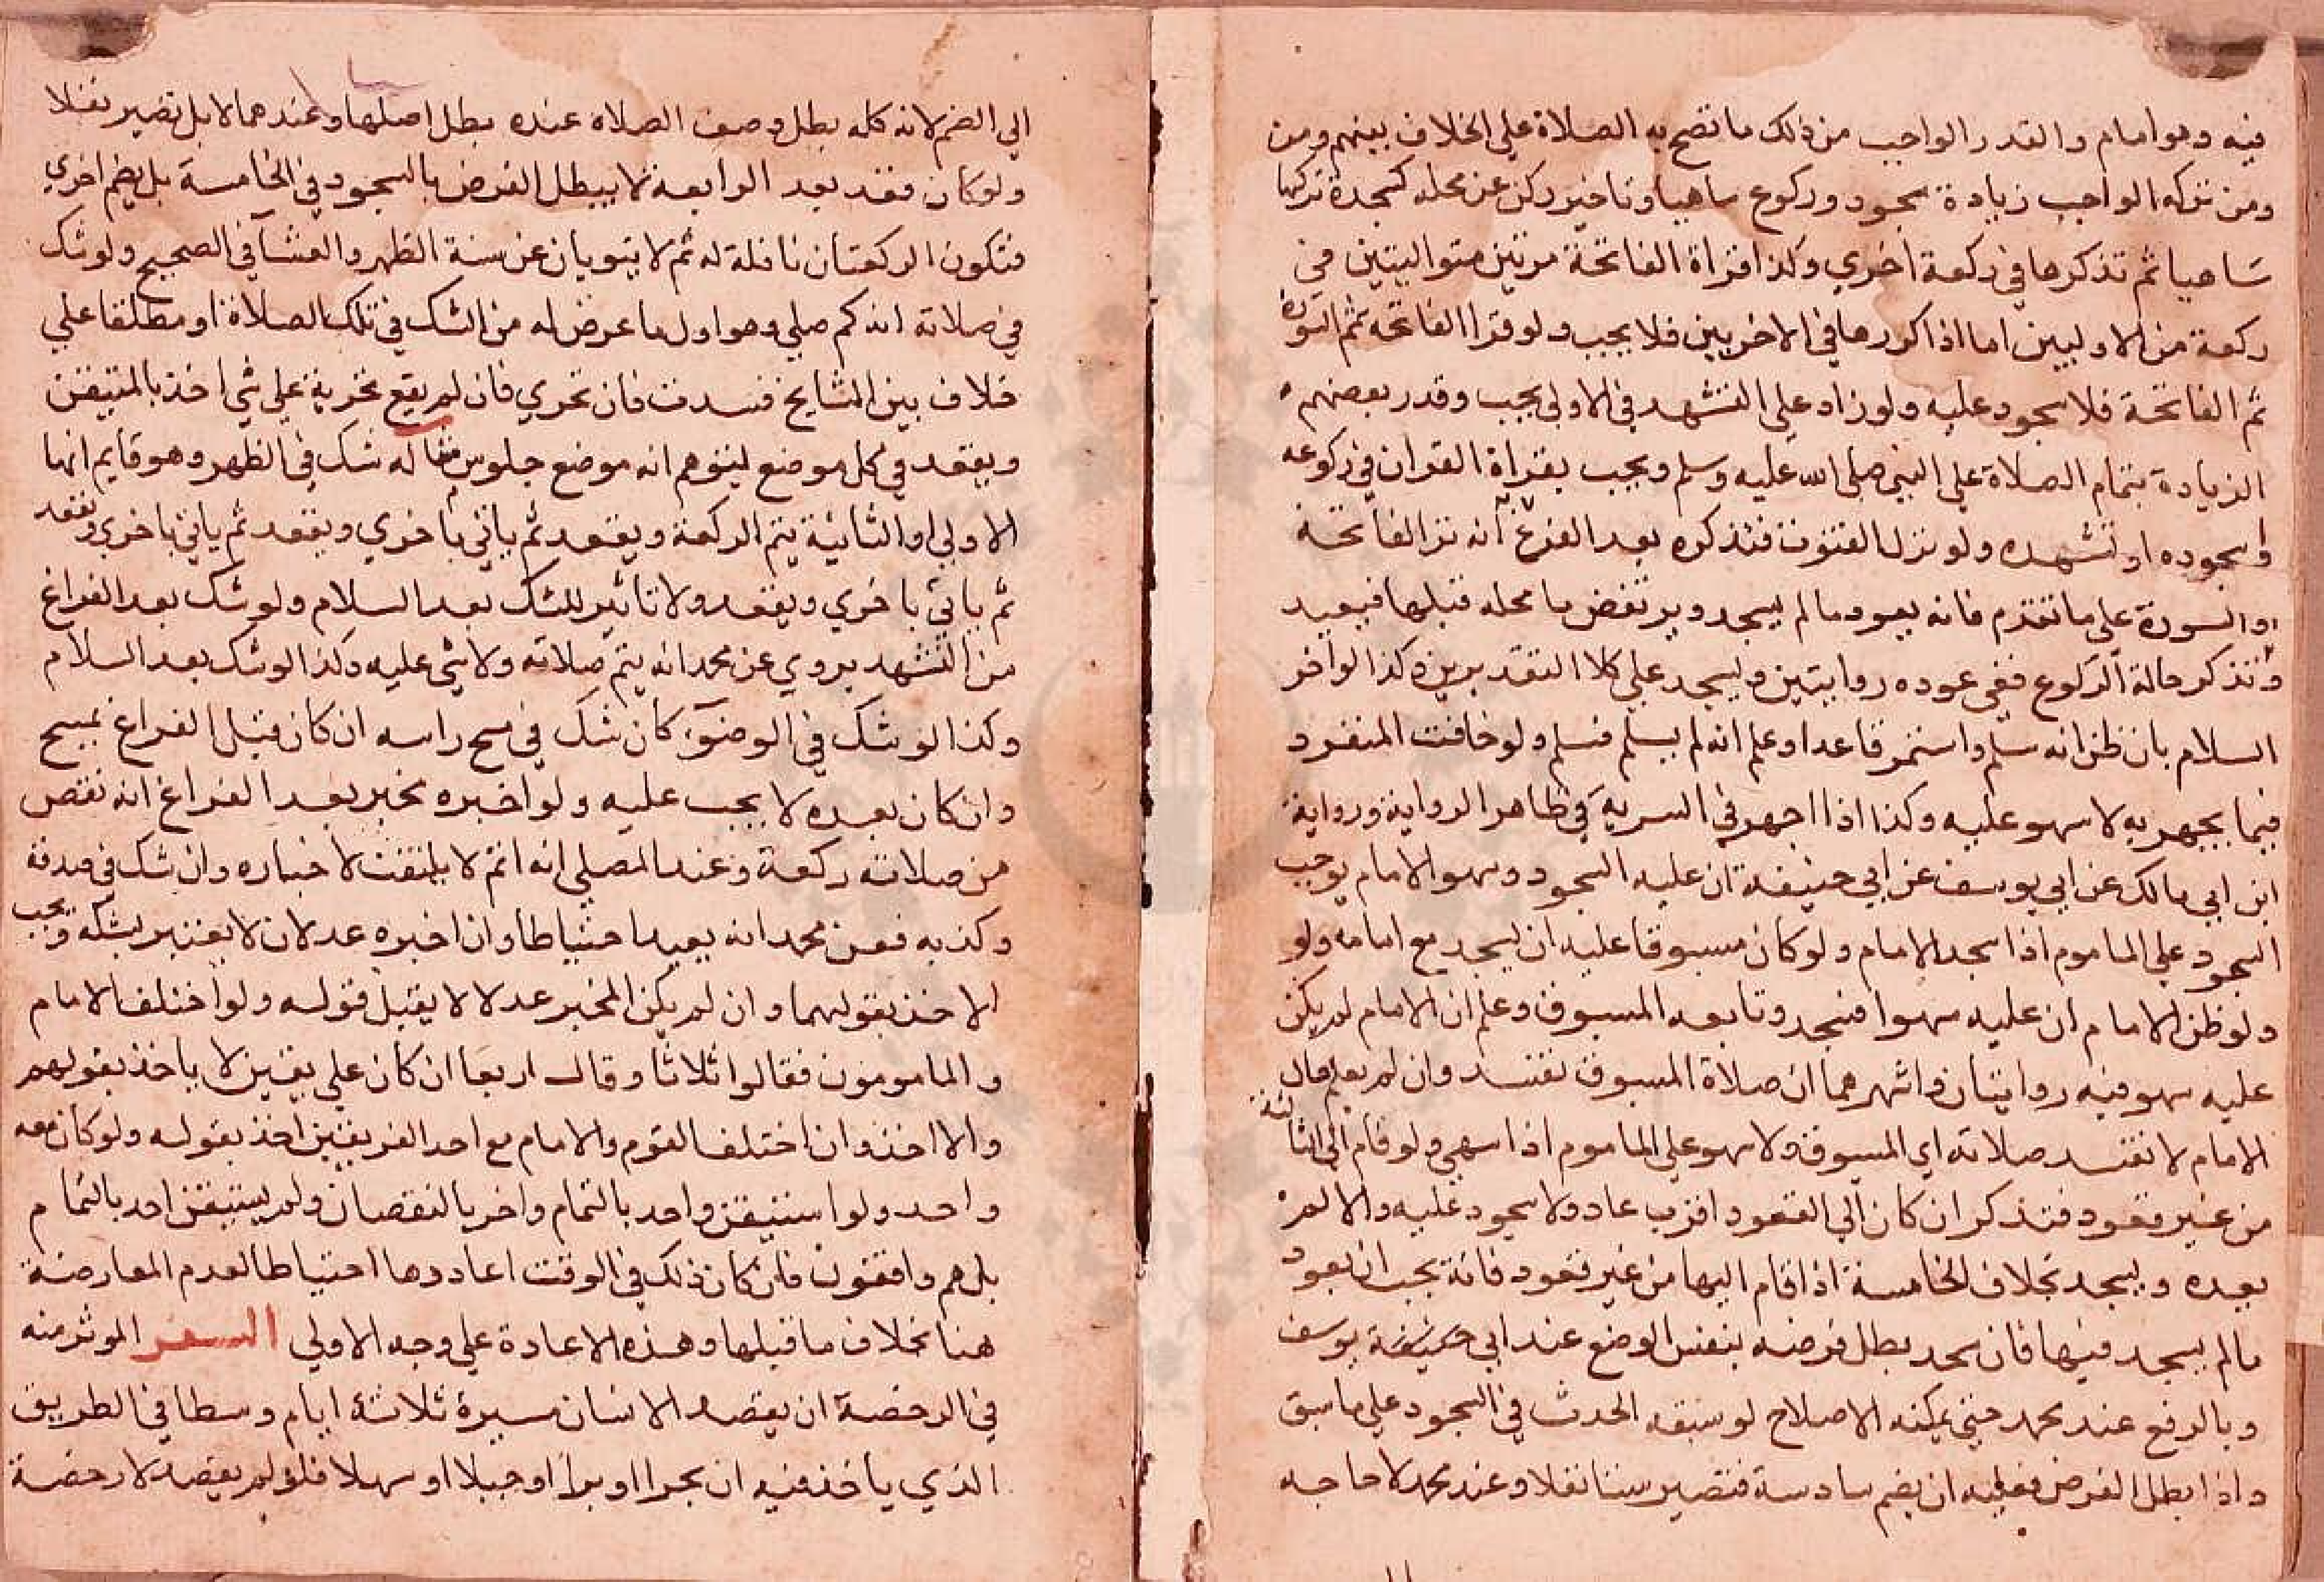 فيه وهو امام والقدر الواجب من ذلك ما تصح به الصلاة علي الخلاف بينهم ومن
ومن تركه الواجب زيادة سجود وركوع ساهيا وتاخير ركن عن محله كسجدة تركها
ساهيا ثم تذكرها في ركعة اخري وكذا قراة الفاتحة مرتين متواليتين في
ركعة من الاوليين اما اذا كررها في الاخريين فلا يجب ولو قرا الفاتحة ثم السورة
ثم الفاتحة فلا سجود عليه ولو زاد علي التشهد في الاولي يجب وقدر بعضهم
الزيادة بتمام الصلاة علي النبي صلي الله عليه وسلم ويجب بقراة القران في ركوعه
وسجوده او تشهده ولو ترك القنوت فتذكره بعد الفرغ انه ترك الفاتحة
او السورة علي ما تقدم فانه يعود ما لم يسجد ويرتفض ما محله قبلها فيعيد
وتذكر حالة الركوع ففي عوده روايتين ويسجد علي كلا التقديرين وكذا لو اخر
السلام بان ظن انه سلم واستمر قاعدا وعلم انه لم يسلم فسلم ولو خافت المنفرد
فيما يجهر به لا سهو عليه وكذا اذا اجهر في السرية في ظاهر الرواية ورواية
ابن ابي مالك عن ابي يوسف عن ابي حنيفة ان عليه السجود وسهو الامام يوجب
السجود علي الماموم اذا سجد الامام ولو كان مسبوقا عليه ان يسجد مع امامه ولو
ولو ظن الامام ان عليه سهوا فسجد وتابعه المسبوق وعلم ان الامام لم يكن
عليه سهو فيه روايتان واشهرهما ان صلاة المسبوق تفسد وان لم يعلم قال
الامام لا تفسد صلاته اي المسبوق ولا سهو علي الماموم اذا سهي ولو قام الي الثالثة
من غير قعود فتذكر ان كان الي القعود اقرب عاد ولا سجود عليه والا لم
يعده ويسجد بخلاف الخامسة اذا قام اليها من غير قعود فانه يجب ان يعود
ما لم يسجد فيها فان سجد بطل فرضه بنفس الوضع عند ابي يوسف
وبالرفع عند محمد حتي يمكنه الاصلاح لو سبقه الحدث في السجود علي ما سبق
واذا بطل الفرض فعليه ان يضم سادسة فتصير ستا نفلا وعند محمد لا حاجه
الي الضم لانه كله بطل وصف الصلاه عنده بطل اصلها وعندهما لا بل تصير نفلا
ولو كان قعد بعد الرابعة لا يبطل الفرض بالسجود في الخامسة بل يضم اخري
فتكون الركعتان نافلة له ثم لا ينويان عن سنة الظهر والعشا في الصحيح ولو شك
في صلاته انه كم صلي وهو اول ما عرض له من الشك في تلك الصلاة او مطلقا علي
خلاف بين المشايخ فسدت فان تحري فان لم يقع تحريه علي شي اخذ بالمتيقن
ويقعد في كل موضع ليتوهم انه موضع جلوس مثاله شك في الظهر وهو قايم انها
الاولي او الثانية يتم الركعة ويقعد ثم ياتي باخري ويقعد ثم ياتي باخري ويقعد
ثم ياتي باخري ويقعد ولا تاثير للشك بعد السلام ولو شك بعد الفراغ
من التشهد يروي عن محمد انه يتم صلاته ولا شي عليه وكذا لو شك بعد السلام
وكذا لو شك في الوضوء كان شك في مسح راسه ان كان قبل الفراغ يمسح
وان كان بعده لا يجب عليه ولو اخبره مخبر بعد الفراغ انه نقص
من صلاته ركعة وعند المصلي انه اتم لا يلتفت لاخباره وان شك في صدقه
وكذبه فعن محمد انه يعيد احتياطا وان اخبره عدلان لا يعتبر بشكه ويجب
الاخذ بقولهما وان لم يكن المخبر عدلا لا يقبل قوله ولو اختلف الامام
والمامومون فقالوا ثلاثا وقال اربعا ان كان علي يقين لا ياخذ بقولهم
والا اخذ وان اختلف القوم والامام مع احد الفريقين اخذ بقوله ولو كان معه
واحد ولو استيقن واحد بالتمام واخر بالنقصان ولم يستيقن احد بالتمام
بل هم واقفون فان كان ذلك في الوقت اعادوها احتياطا لعدم المعارضة
هنا بخلاف ما قبلها وهذه الاعادة علي وجه الاولي السفر الموثر منه
في الرخصة ان يقصد الانسان مسيرة ثلاثة ايام وسطا في الطريق
الذي ياخذ فيه ان بحرا او برا او جبلا او سهلا فلو لم يقصد لا رخصة